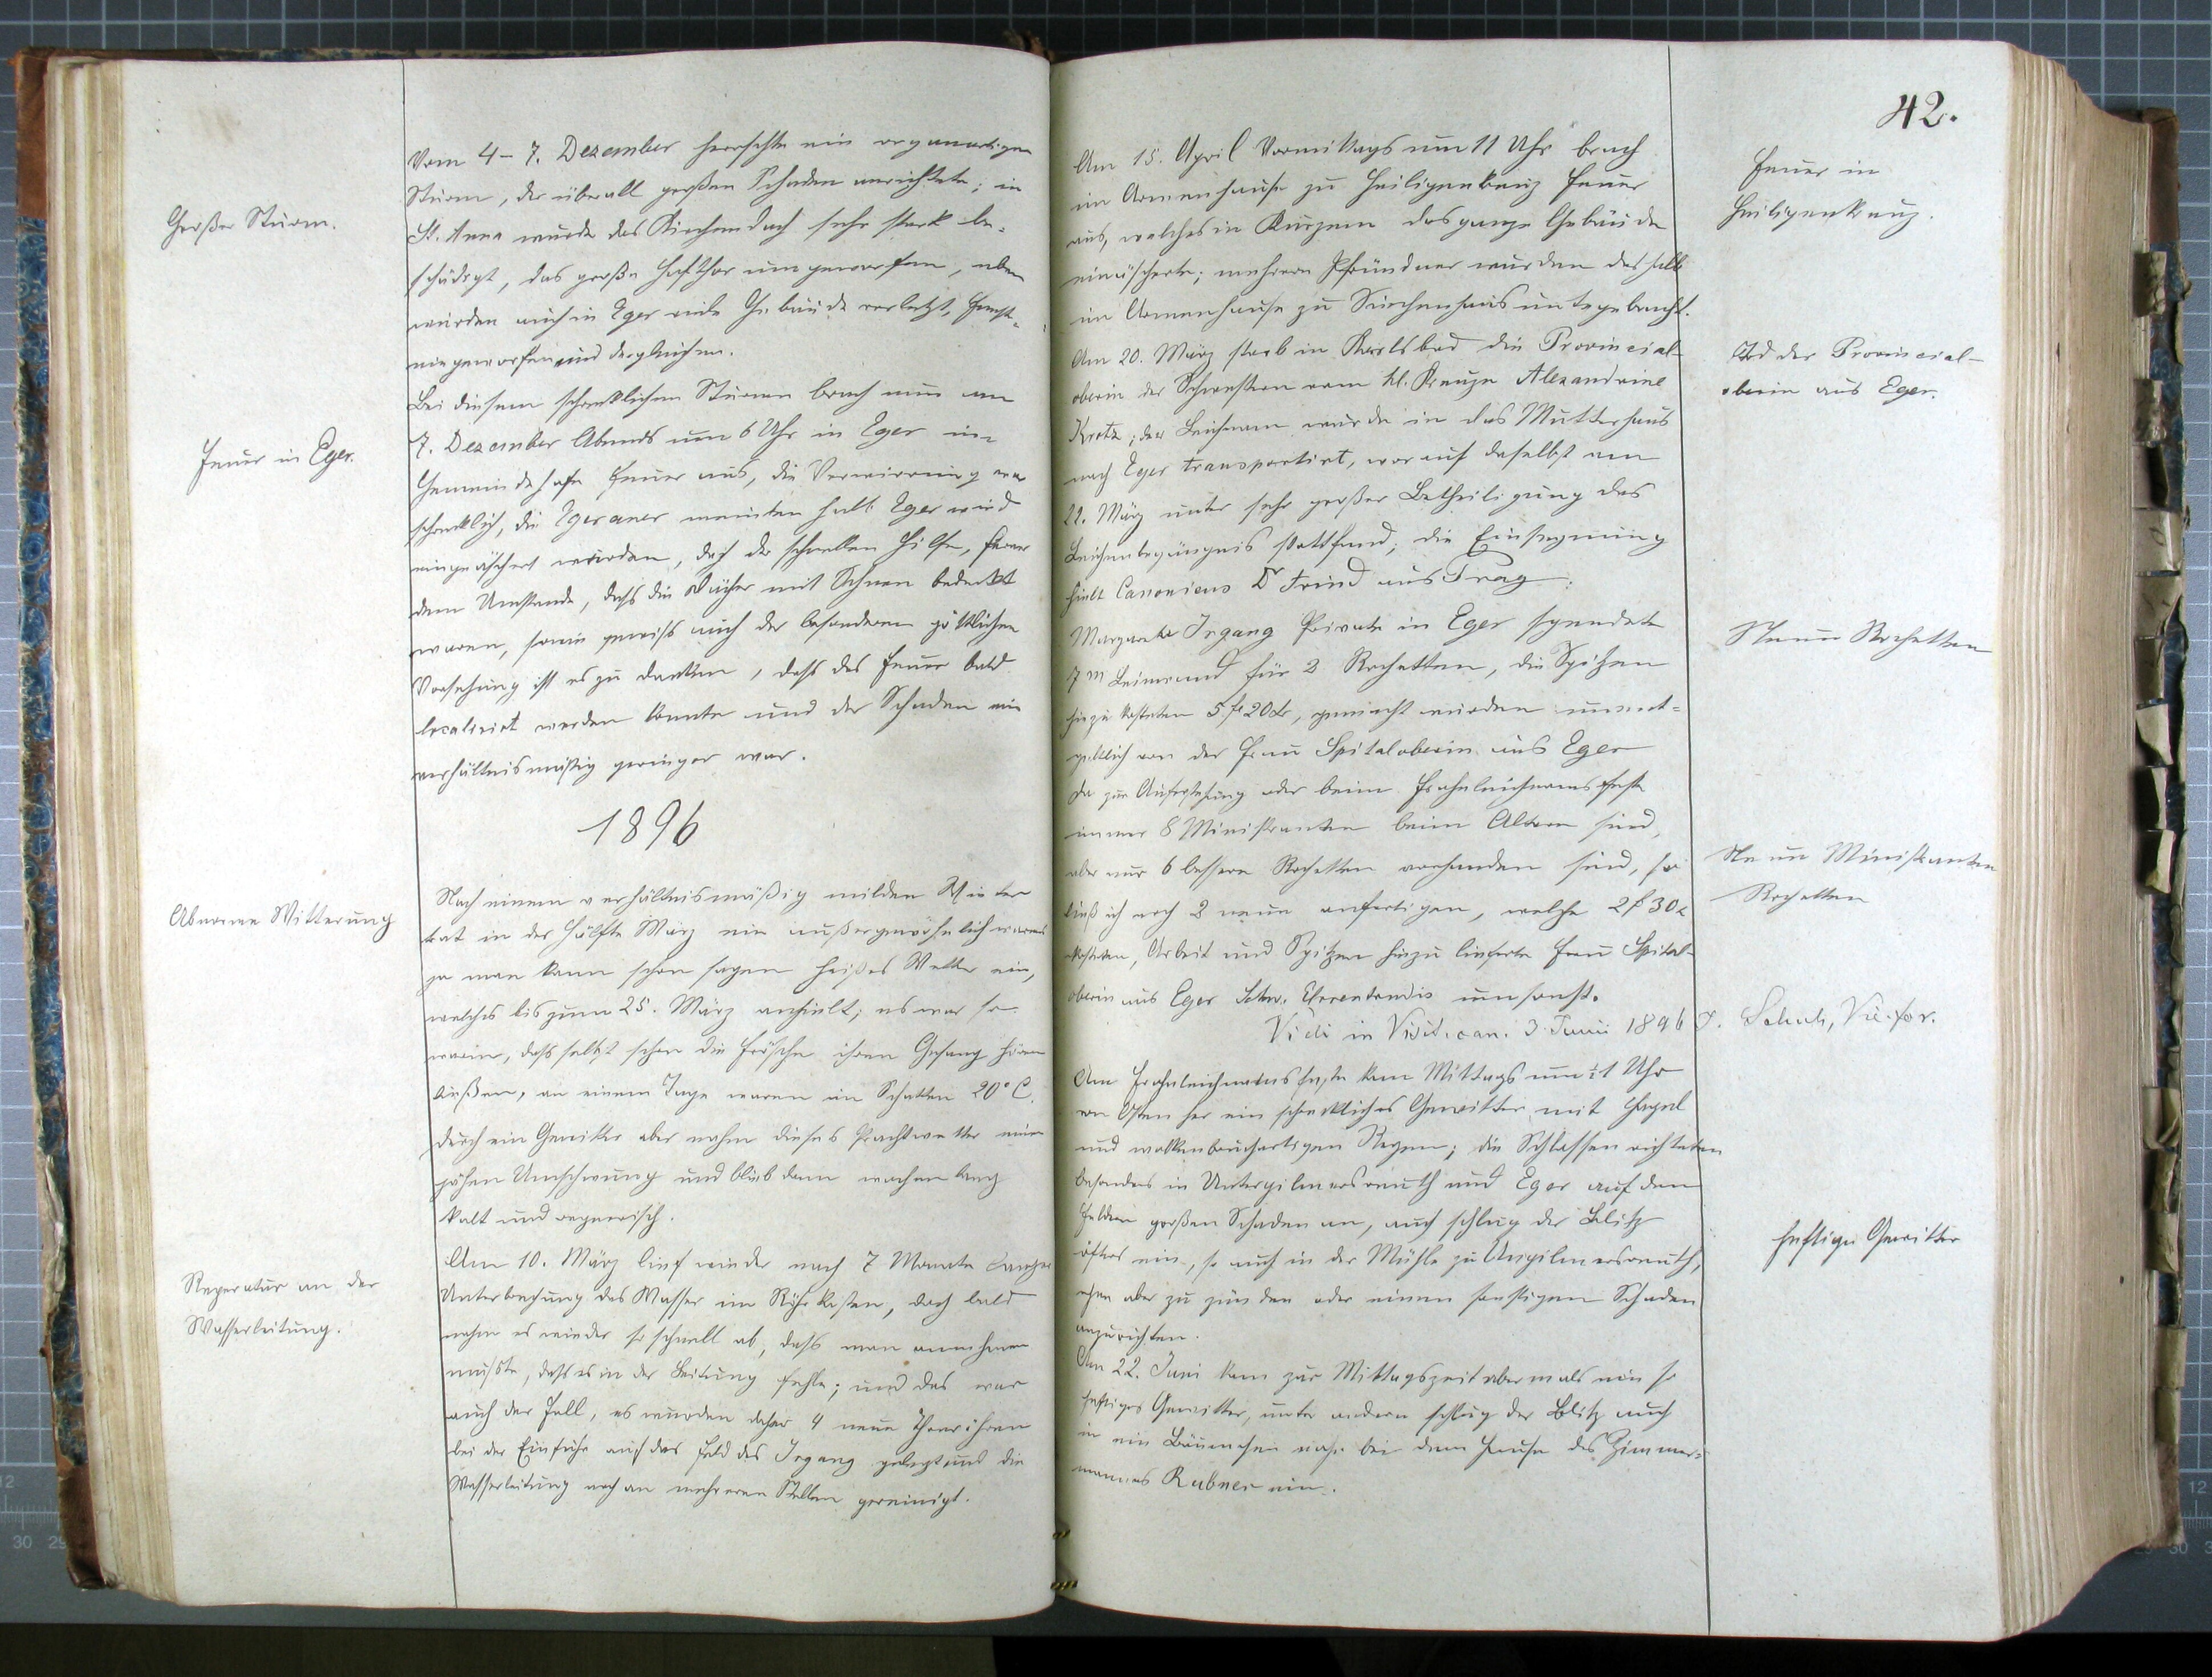 Großer Sturm.
Vom 4-7. Dezember herrschte ein orkanartiger
Sturm, der überall großen Schaden anrichtete; in
St. Anna wurde das Kirchendach sehr stark be-
schädigt, das große Hofthor umgeworfen, eben
wurden auch in Eger viele Gebäude verletzt, Fenster
eingeworfen und dergleichen.
Feuer in Eger.
Bei diesem schrecklichen Sturme brach nun am
7. Dezember Abends um 6 Uhr in Eger im
Gemeindehofe Feuer aus, die Verwirrung war
schrecklich, die Egeraner meinten halb Eger wird
eingeäschert werden, doch der schnellen Hilfe, ferner
dem Umstande, dass die Dächer mit Schnee bedeckt
waren, sowie gewiss auch der besonderen göttlichen
Vorsehung ist es zu danken, dass das Feuer bald
localisirt werden konnte und der Schaden ein
verhältnismäßig geringer war.
1896
Abnorme Witterung
Nach einem verhältnismäßig milden Winter
trat in der Hälfte März ein außergewöhnlich warmes
ja man kann schon sagen heißes Wetter ein,
welches bis zum 25. März anhielt; es war so
warm, dass selbst schon die Frösche ihren Gesang hören
ließen, an einem Tage waren im Schatten 20° C.
durch ein Gewitter aber nahm dieses Prachtwetter einen
jähen Umschwung und blieb dann wochenlang
kalt und regnerisch.
Reperatur an der
Wasserleitung.
Am 10. März lief wieder nach 7 Monate langer
Unterbrechung das Wasser im Röhrkasten, doch bald
nahm es wieder so schnell ab, dass man annehmen
musste, dass es in der Leitung fehle; und das war
auch der Fall, es wurden daher 4 neue Thonröhren
bei der Einfuhr auf das Feld des Irgang gelegt und die
Wasserleitung noch an mehreren Stellen gereinigt.
42.
Feuer in
Heiligenkreuz.
Am 15. April Vormittags um 11 Uhr brach
im Armenhause zu Heiligenkreuz Feuer
aus, welches in Kurzem das ganze Gebäude
einäscherte; mehrere Pfründner wurden deshalb
im Armenhause zu untergebracht.
Tod der Provincial-
oberin aus Eger.
Am 20. März starb in Karlsbad die Provincial-
oberin der Schwestern vom hl. Kreuze Alexandrine
Kretz; der Leichnam wurde in das Mutterhaus
nach Eger transportirt, worauf daselbst am
22. März unter sehr großer Betheiligung das
Leichenbegängnis stattfand; die Einsegnung
hielt Canonicus Dr Frind aus Prag.
Neue Rochetten
Margareta Irgang Private in Eger spendete
7m Leinwand für 2 Rochetten, die Spitzen
hiezu kosteten 5 fl 20 kr, gemacht wurden unent-
geltlich von der Frau Spitaloberin aus Eger
Neue Ministranten
Rochetten
Da zur Auferstehung oder beim Frohnleichnamsfeste
immer 8 Ministranten beim Altare sind,
aber nur 6 bessere Rochetten vorhanden sind, so
ließ ich noch 2 neue anfertigen, welche 2 f 30 k
kosteten, Arbeit und Spitzen hiezu lieferte Frau Spital-
oberin aus Eger Schw. umsonst.
Vidi in Visit. can. 3. Junii 1896 J. Schuh, Vic. for.
Am Frohnleichnamsfeste kam Mittags um ½1 Uhr
von Osten her ein schreckliches Gewitter mit Hagel
und wolkenbruchartigen Regen; die Schlossen richteten
besonders in Unterpilmersreuth und Eger auf den
Feldern großen Schaden an, auch schlug der Blitz
Heftige Gewitter
öfters ein, so auch in der Mühle zu Unterpilmersreuth,
ohne aber zu zünden oder einen sonstigen Schaden
anzurichten.
Am 22. Juni kam zur Mittagszeit abermals ein so
heftiges Gewitter, unter andern schlug der Blitz auch
in ein Bäumchen nahe bei dem Hause des Zimmer-
mannes Rubner ein.